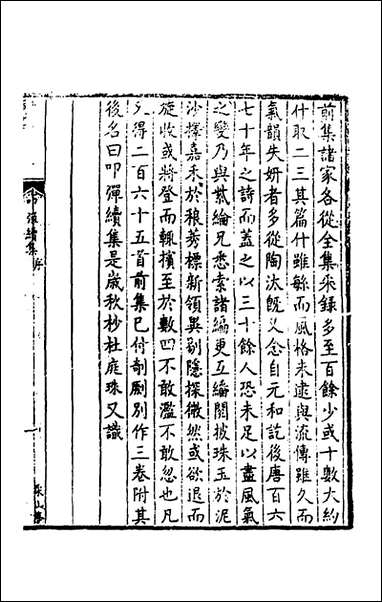 前集諸家各從全集采錄多至百餘少或十數大約
什取二三其篇什雖緐而風格未逮與流傳雖久而
氣韻失妍者多從陶汰旣又念自元和訖後唐百六
七十年之詩而蓋之以三十餘人恐未足以盡風氣
之變乃與紫綸兄悉索諸編更互編閱披珠玉於泥
沙擇嘉禾於稂莠標新領異剔隱探微然或欲退而
旋收或將登而輒擯至於數四不敢濫不敢忽也凡
又得二百六十五首前集已付剞劂別作三卷附其
後名曰叩彈續集是歲秋杪杜庭珠又識
叩彈續集序
一
采山亭